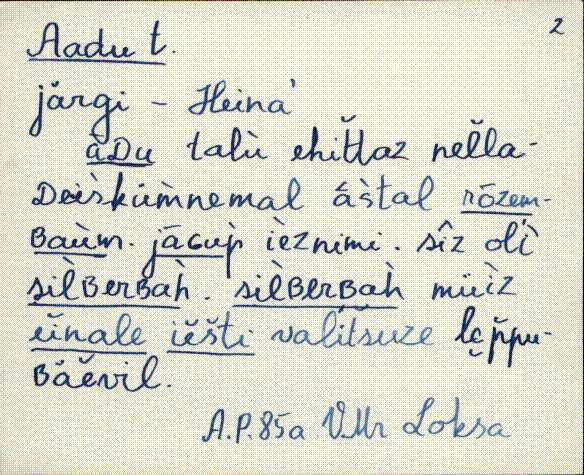 2
Aadu t.
järgi – Heina'
àDu talù ehit̆laz nel̆la-
Deìskùm̀nemal ás̀tal rōzem-
Baùm. jācup̀ ìeznimi. sîz olì
sìlBerBah̀. sìlBerBah̀ müìz
eĭnale iĕšti valit̆suze lep̆pu-
Bäĕvil.
A.P. 85a VMr Loksa